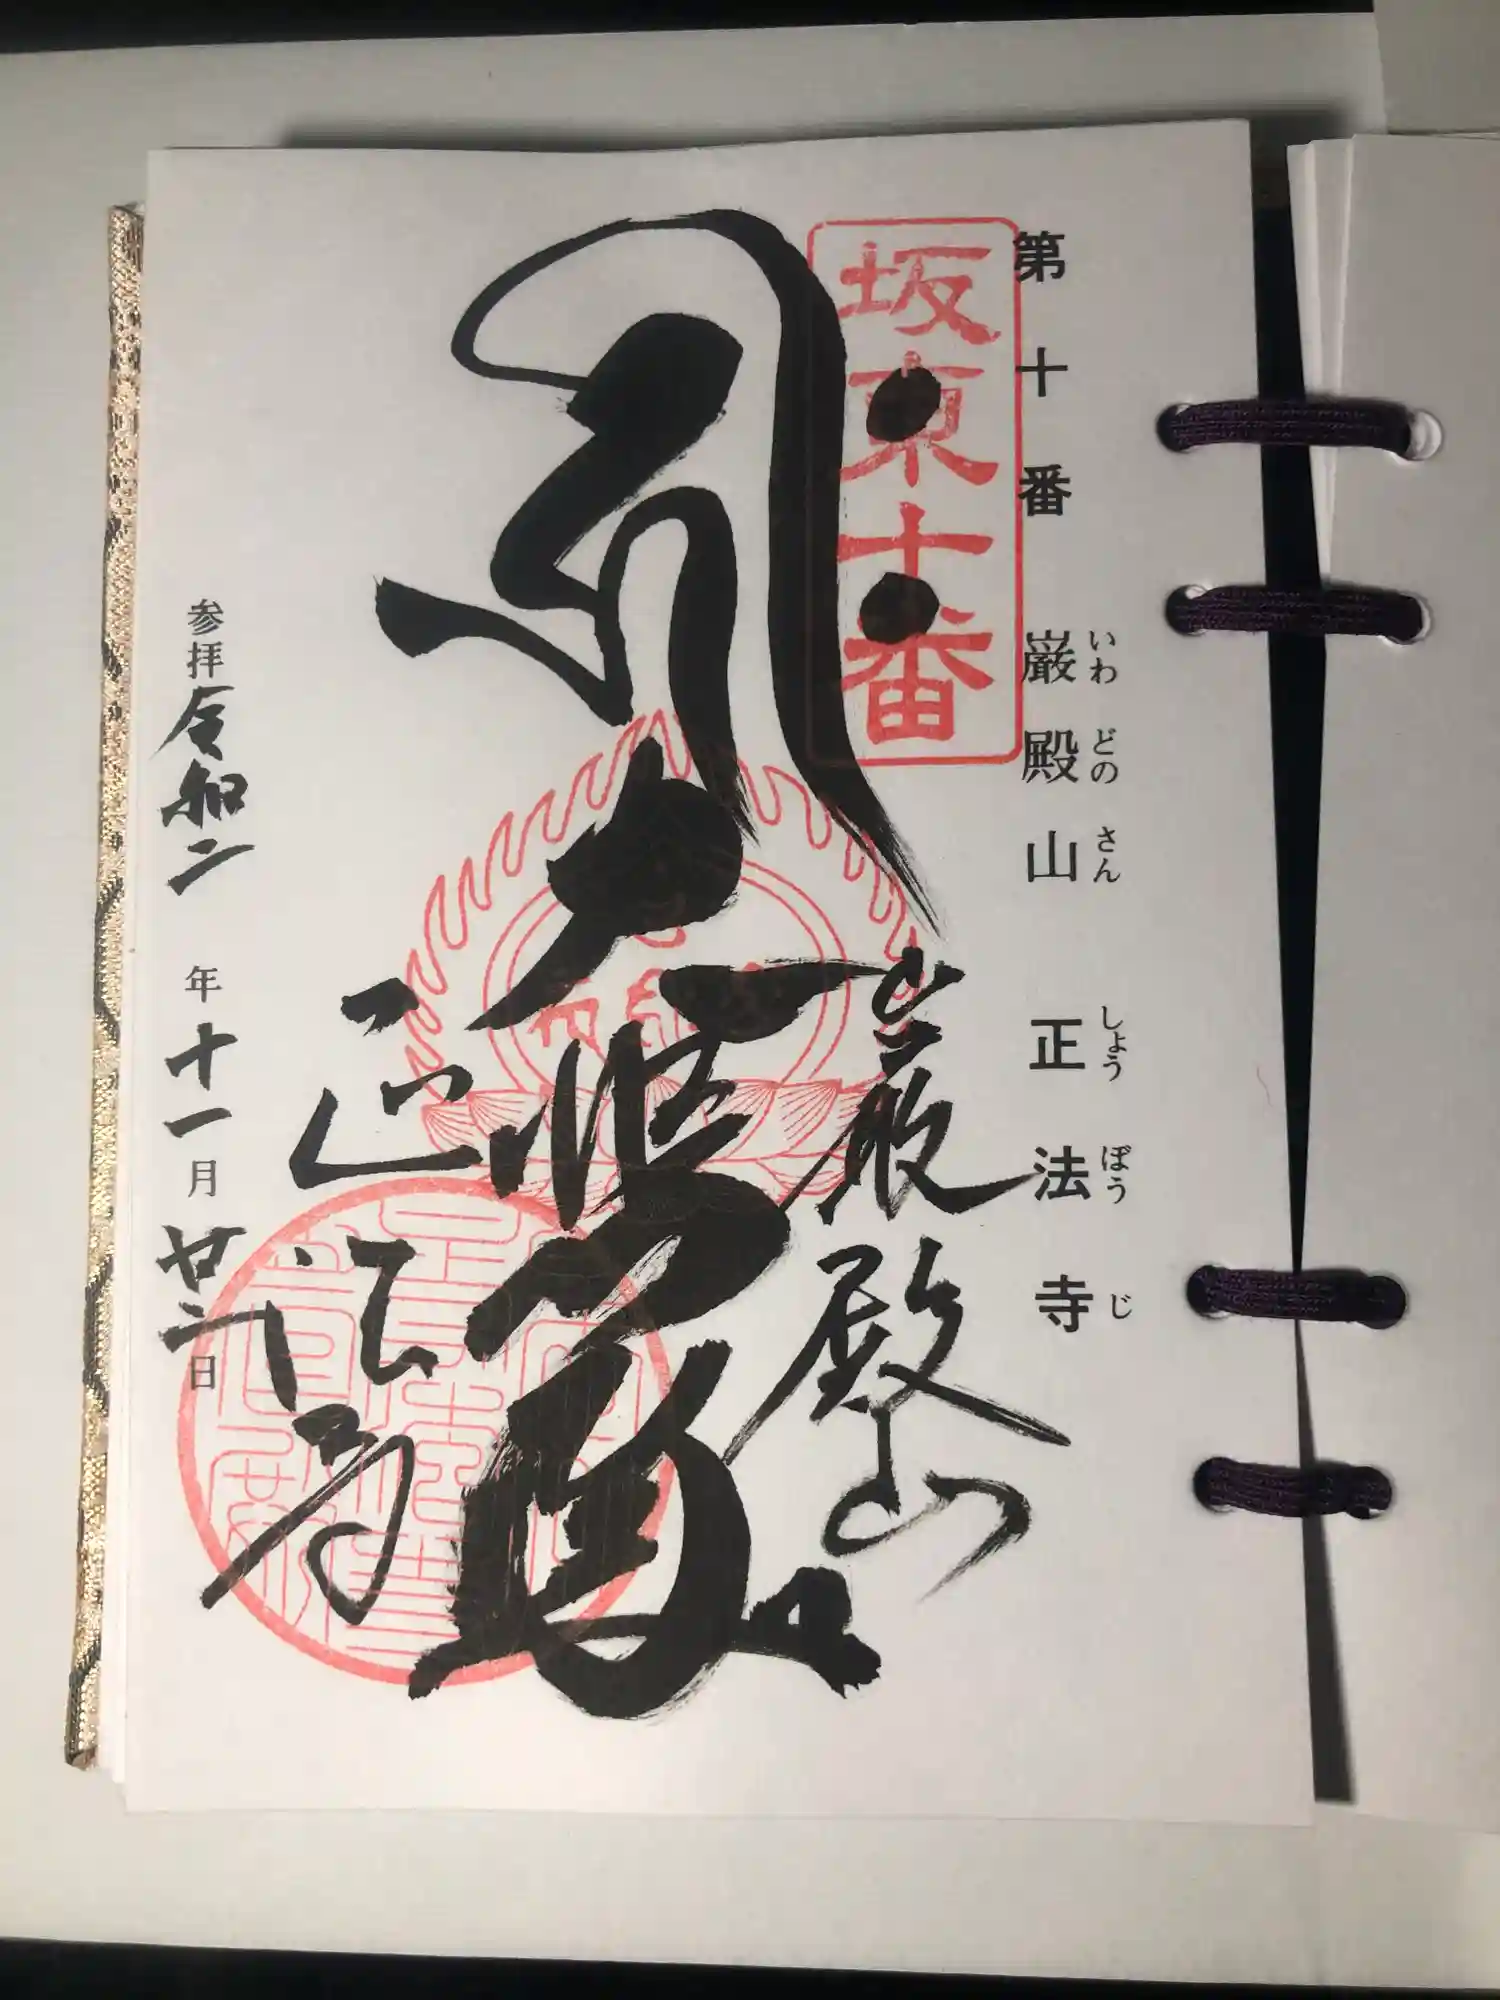 第十番　巌殿山　正法寺
いわ どの さん　しょう ぼう じ
坂東十番
巌殿山
大悲殿
正法寺
参拝 令和二 年 十一 月 廿二 日